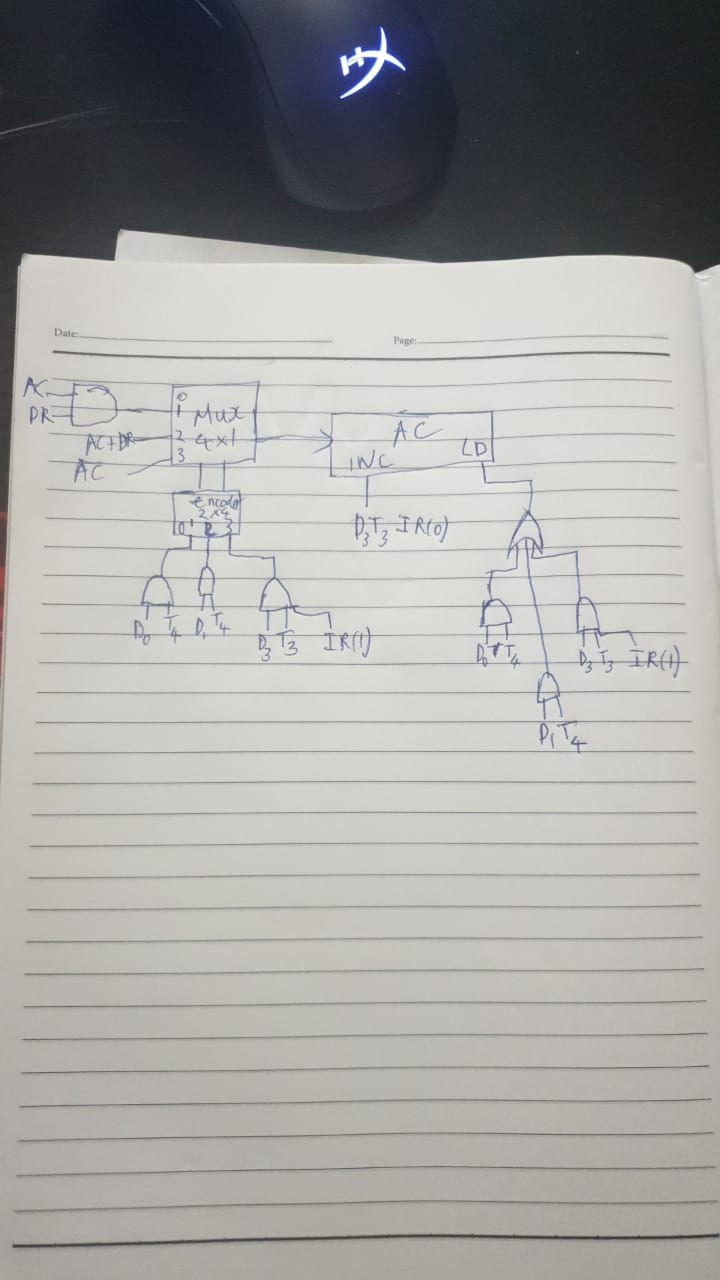 Date:
Page:
AC
DR
AC+DR
AC
0
1
2
3
Mux
4x1
encoder
2x4
0 1 2 3
D0 T4 D1 T4 D3 T3 IR(1)
AC
INC
LD
D3T3 IR(0)
D0 T4
D3 T3 IR(1)
D1 T4